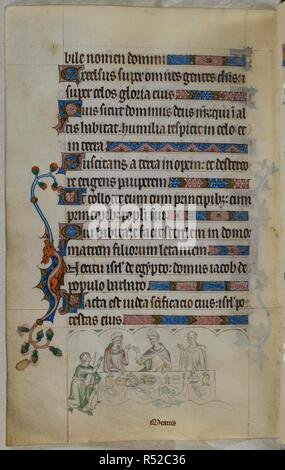 bile nomen domini
Excelsus super omnes gentes dns: ⁊
super celos gloria eius
Quis sicut dominus deus nr qui i al
tis habitat: ⁊ humilia respicit in celo et
in terra
Suscitans a terra inopem: et de stercore
erigens pauperem
Ut collocet eum cum principib: cum
principib: popli sui
Qui habitare facit sterilem in domo:
matrem filiorum letantem
In exitu isrl de egypto: domus iacob de
populo barbaro
Facta est iudea sctificacio eius: isrl po
testas eius
alamy
R52C36